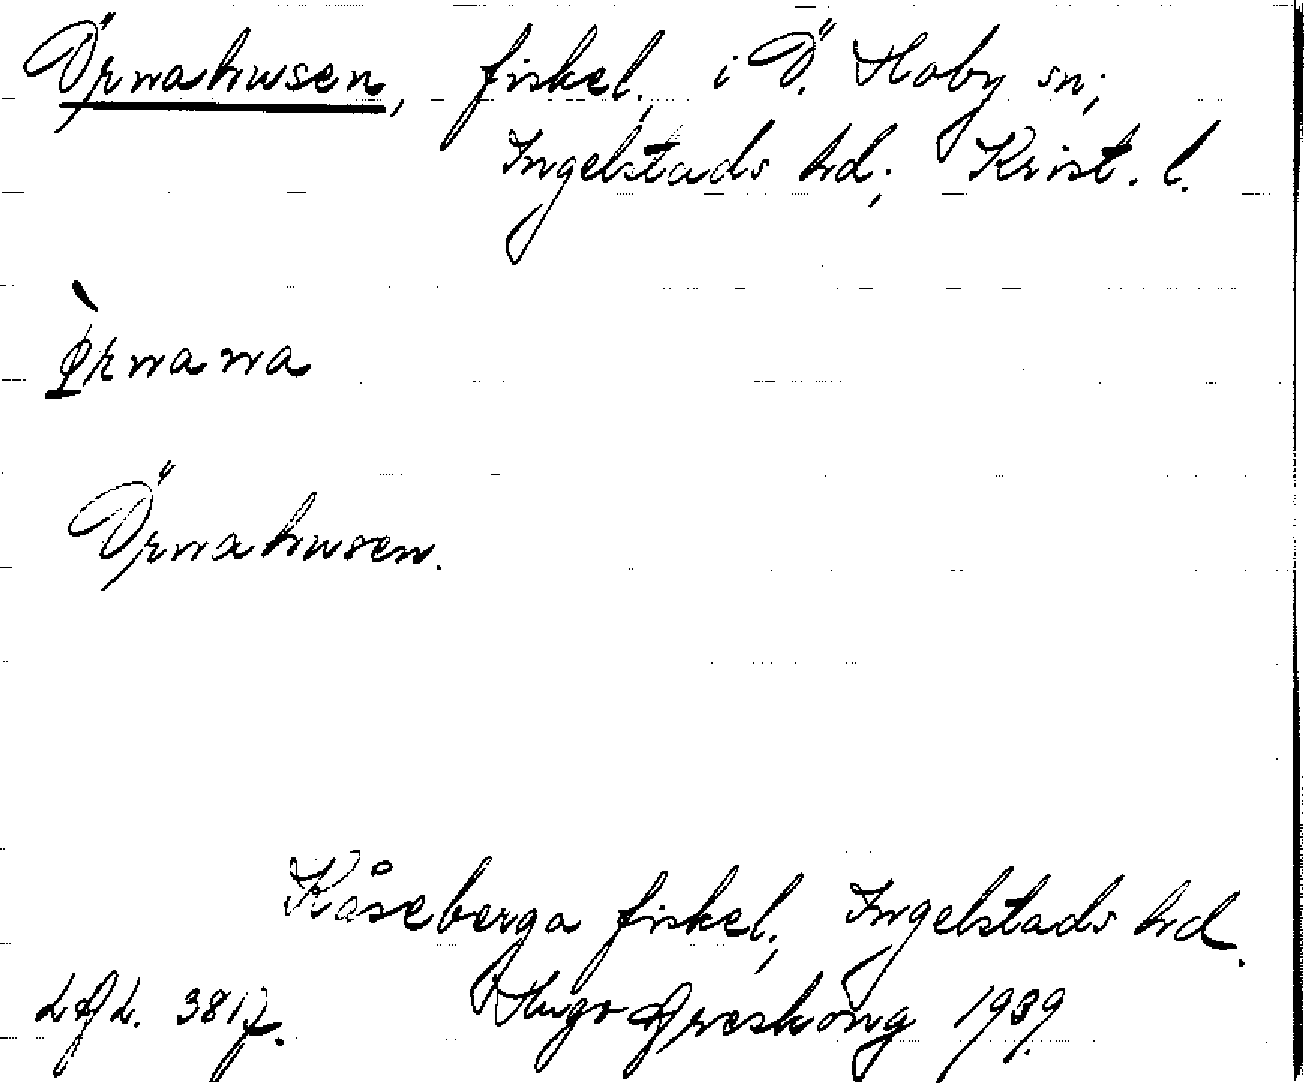 Örnahusen, fiskel. i Ö. Hoby sn;
Ingelstads hd; Krist. l.
ø̀rnana
Örnahusen.
Kåseberga fiskel., Ingelstads hd.
3817. Hugo Areskoug 1939.